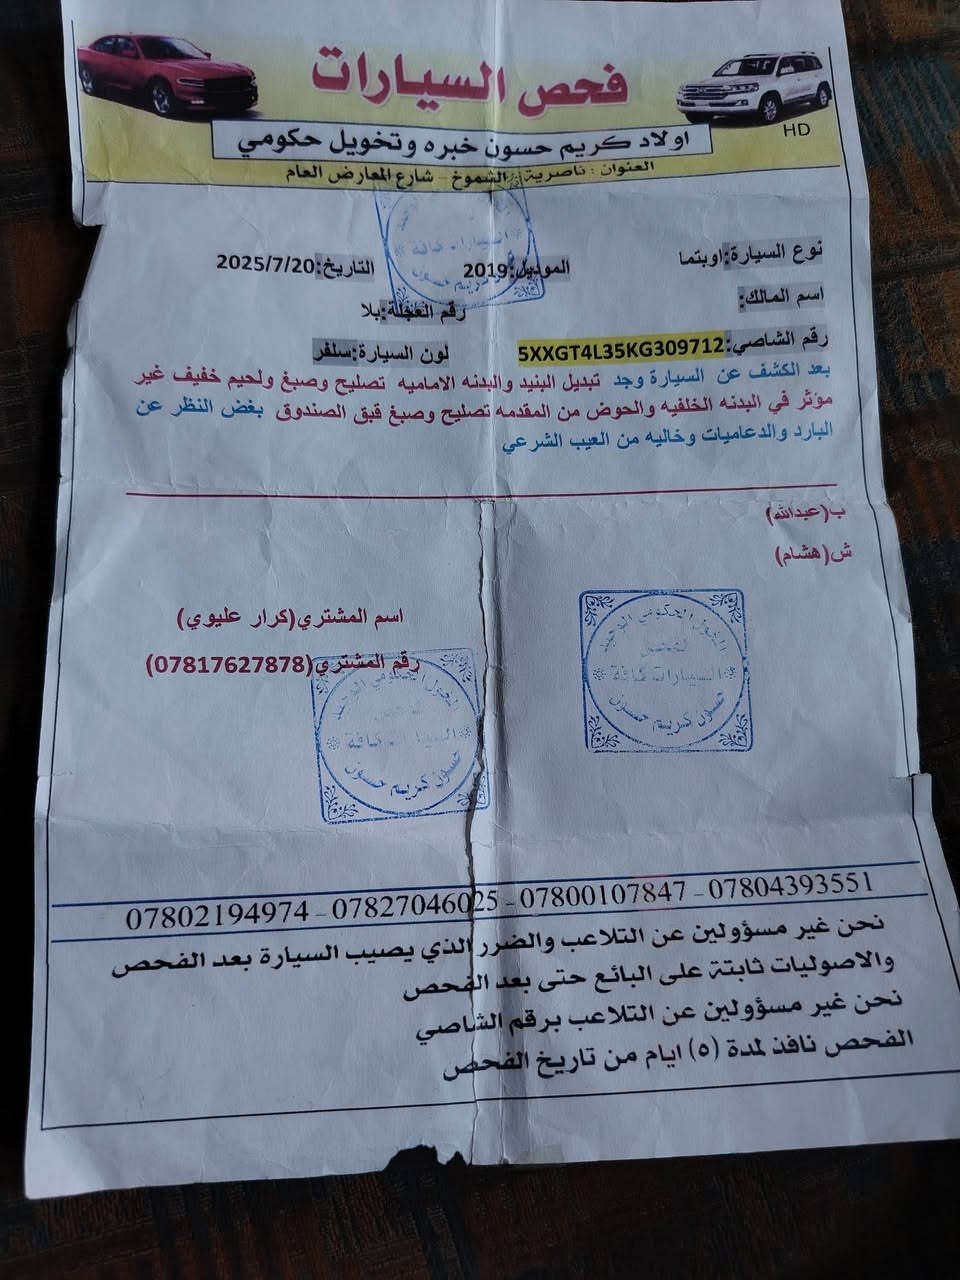 فحص السيارات
HD
اولاد كريم حسون خبره وتخويل حكومي
العنوان : ناصرية - الشموخ - شارع المعارض العام
نوع السيارة:اوبتما الموديل:2019 التاريخ:2025/7/20
اسم المالك: رقم العجلة:بلا
رقم الشاصي:5XXGT4L35KG309712 لون السيارة:سلفر
بعد الكشف عن السيارة وجد تبديل البنيد والبدنه الاماميه تصليح وصبغ ولحيم خفيف غير
مؤثر في البدنه الخلفيه والحوض من المقدمه تصليح وصبغ قبق الصندوق بغض النظر عن
البارد والدعاميات وخاليه من العيب الشرعي
ب(عبدالله)
ش(هشام)
اسم المشتري(كرار عليوي)
رقم المشتري(07817627878)
المخول الحكومي الوحيد
لفحص
السيارات كافة
حسون كريم حسون
07802194974 - 07827046025 - 07800107847 - 07804393551
نحن غير مسؤولين عن التلاعب والضرر الذي يصيب السيارة بعد الفحص
والاصوليات ثابتة على البائع حتى بعد الفحص
نحن غير مسؤولين عن التلاعب برقم الشاصي
الفحص نافذ لمدة (٥) ايام من تاريخ الفحص